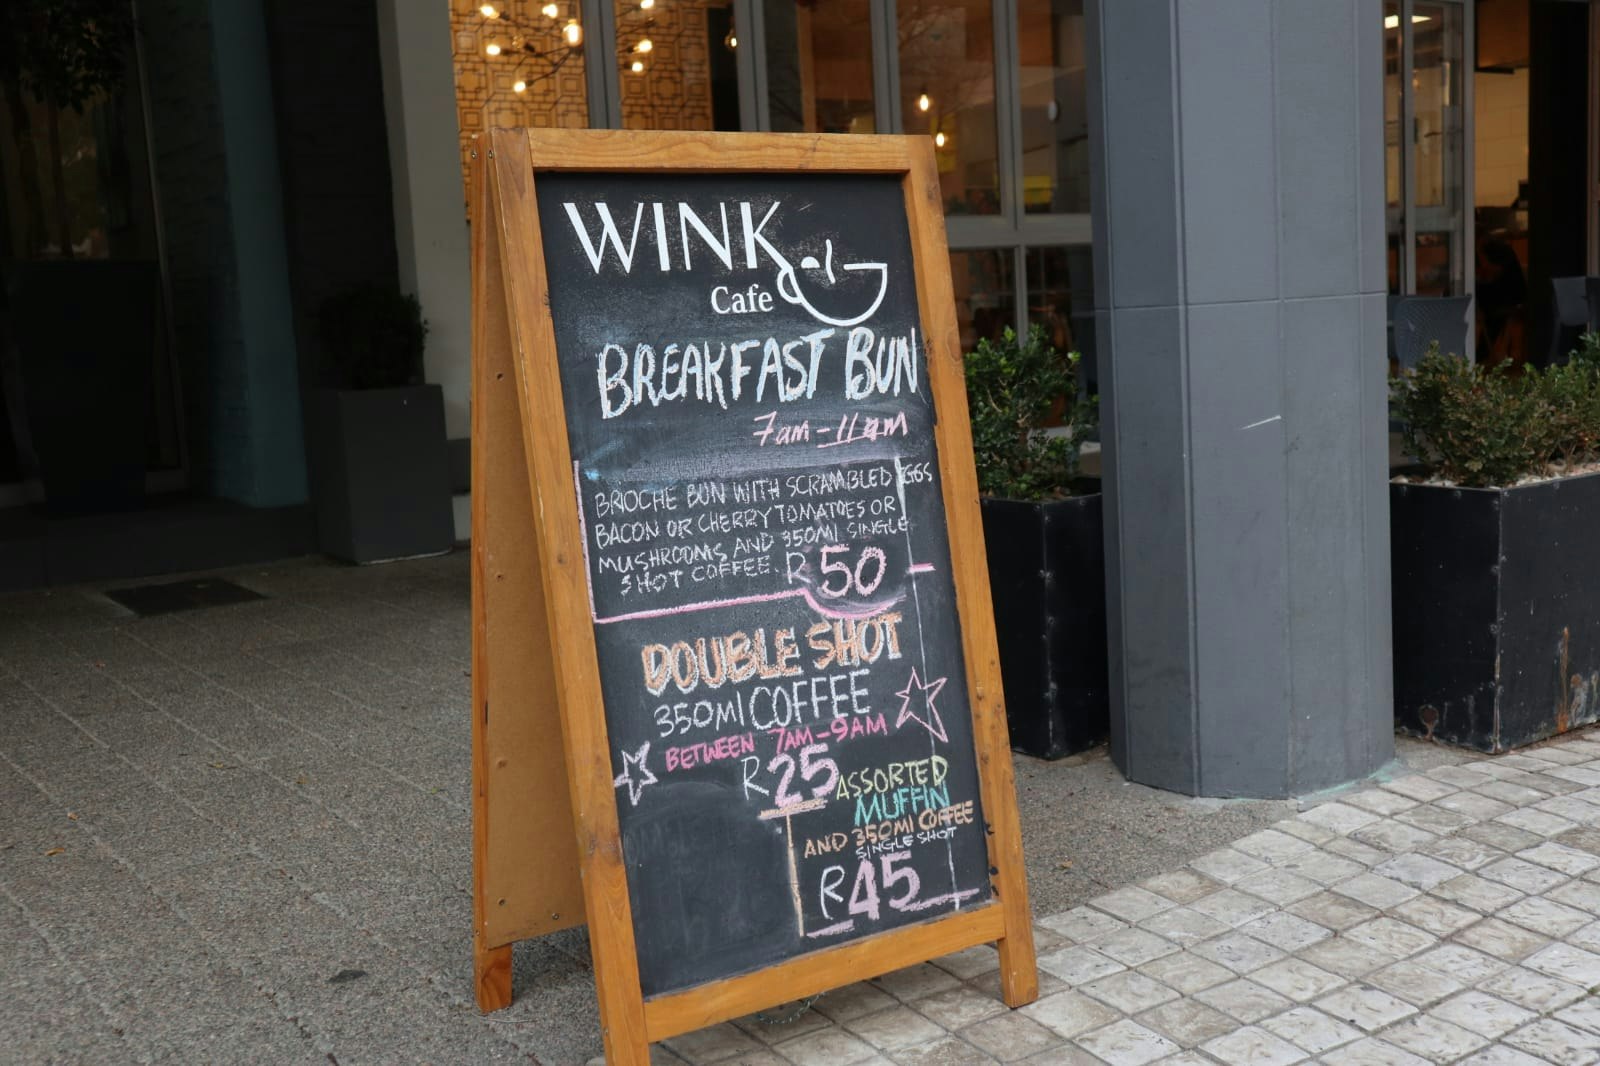 WINK
Cafe
BREAKFAST BUN
7am - 11am
BRIOCHE BUN WITH SCRAMBLED EGGS
BACON OR CHERRY TOMATOES OR
MUSHROOMS AND 350Ml SINGLE
SHOT COFFEE. R50
DOUBLE SHOT
350Ml COFFEE
BETWEEN 7AM-9AM
R25
ASSORTED
MUFFIN
AND 350Ml COFFEE
SINGLE SHOT
R45